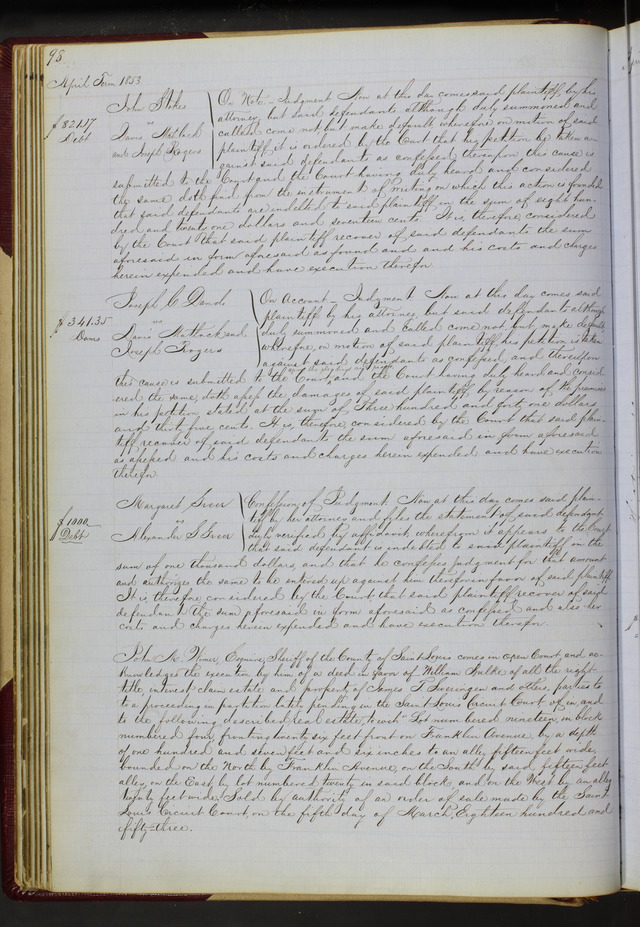 98
April Term 1853
John Stokes
vs
Davis Matlack
and Joseph Rogers
$821.17
Debt
On Note - Judgment Now at this day comes said plaintiff by his
attorney, but said defendants although duly summoned and
called come not, but make default wherefore on motion of said
plaintiff it is ordered by the Court that his petition be taken a-
gainst said defendants as confessed, thereupon this cause is
submitted to the Court, and the Court having duly heard and considered
the same doth find from the instrument of writing on which this action is founded
that said defendants are indebted to said plaintiff in the sum of eight hun-
dred and twenty one dollars and seventeen cents. It is, therefore, considered
by the Court that said plaintiff recover of said defendants the sum
aforesaid in form aforesaid as found and his costs and charges
herein expended and have execution therefor
Joseph C
vs
Davis Matlack and
Joseph Rogers
$341.35
Dams
On Account - Judgment Now at this day comes said
plaintiff by his attorney, but said defendants although
duly summoned and called come not, but make default
wherefore, on motion of said plaintiff, his petition is taken
against said defendants as confessed, and thereupon
this cause is submitted to the Court, and the Court having duly heard and consid-
ered the same, doth assess the damages of said plaintiff by reason of the premises
in his petition stated at the sum of Three hundred and forty one dollars
and thirty five cents. It is, therefore, considered by the Court that said plain-
tiff recover of said defendants the sum aforesaid in form aforesaid
as assessed and his costs and charges herein expended and have execution
therefor
Margaret Greer
vs
Alexander S Greer
$1000
Debt
Confession of Judgment. Now at this day comes said plain-
tiff by her attorney and files the statement of said defendant
duly verified by affidavit, wherefrom it appears to the Court
that said defendant is indebted to said plaintiff in the
sum of one thousand dollars, and that he confesses judgment for that amount
and authorizes the same to be entered up against him therefor in favor of said plaintiff
It is therefore considered by the Court that said plaintiff recover of said
defendant the sum aforesaid in form aforesaid as confessed and also her
costs and charges herein expended and have execution therefor.
John M. Wimer, Esquire, Sheriff of the County of Saint Louis comes in open Court, and ac-
knowledges the execution by him of a deed in favor of William of all the right
title, interest, claim estate and property of James T Sweringen and others, parties to
to a proceeding in partition lately pending in the Saint Louis Circuit Court of, in and
to the following described real estate, to wit "Lot numbered nineteen, in block
numbered four, fronting twenty six feet front on Franklin Avenue, by a depth
of one hundred and seven feet and six inches to an alley fifteen feet wide,
bounded on the North by Franklin Avenue, on the South by said fifteen feet
alley, on the East by lot numbered twenty in said block and on the West by an alley
twenty feet wide." Sold by authority of an order of sale made by the Saint
Louis Circuit Court, on the fifth day of March, Eighteen hundred and
fifty-three.